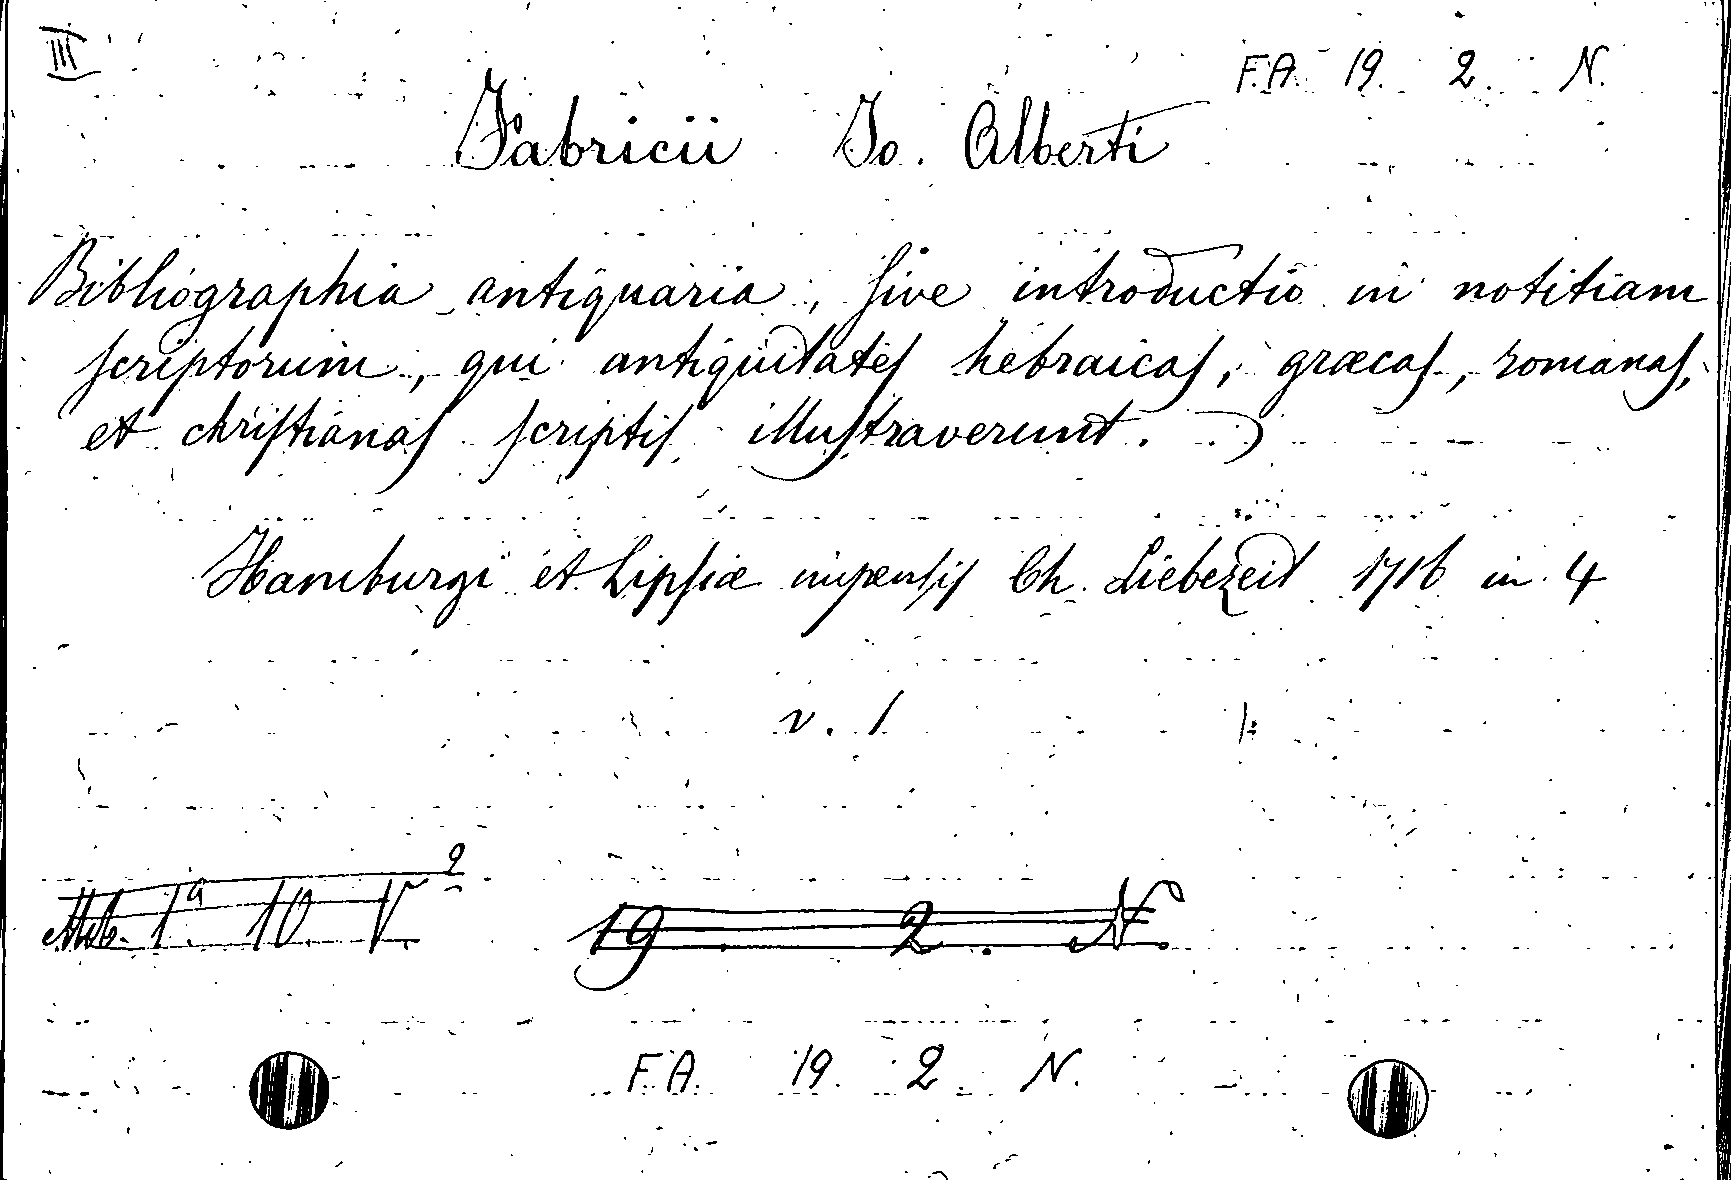 III
F.A. 19. 2. N.
Fabricii Jo. Alberti
Bibliographia antiquaria, sive introductio in notitiam
scriptorum, qui antiquitates hebraicas, græcas, romanas,
et christianas scriptis illustraverunt.
Hamburgi et Lipsiæ impensis Ch. Liebezeit 1716 in 4
v. 1
1ª. 10. V. 2
19. 2. N.
F.A. 19. 2. N.